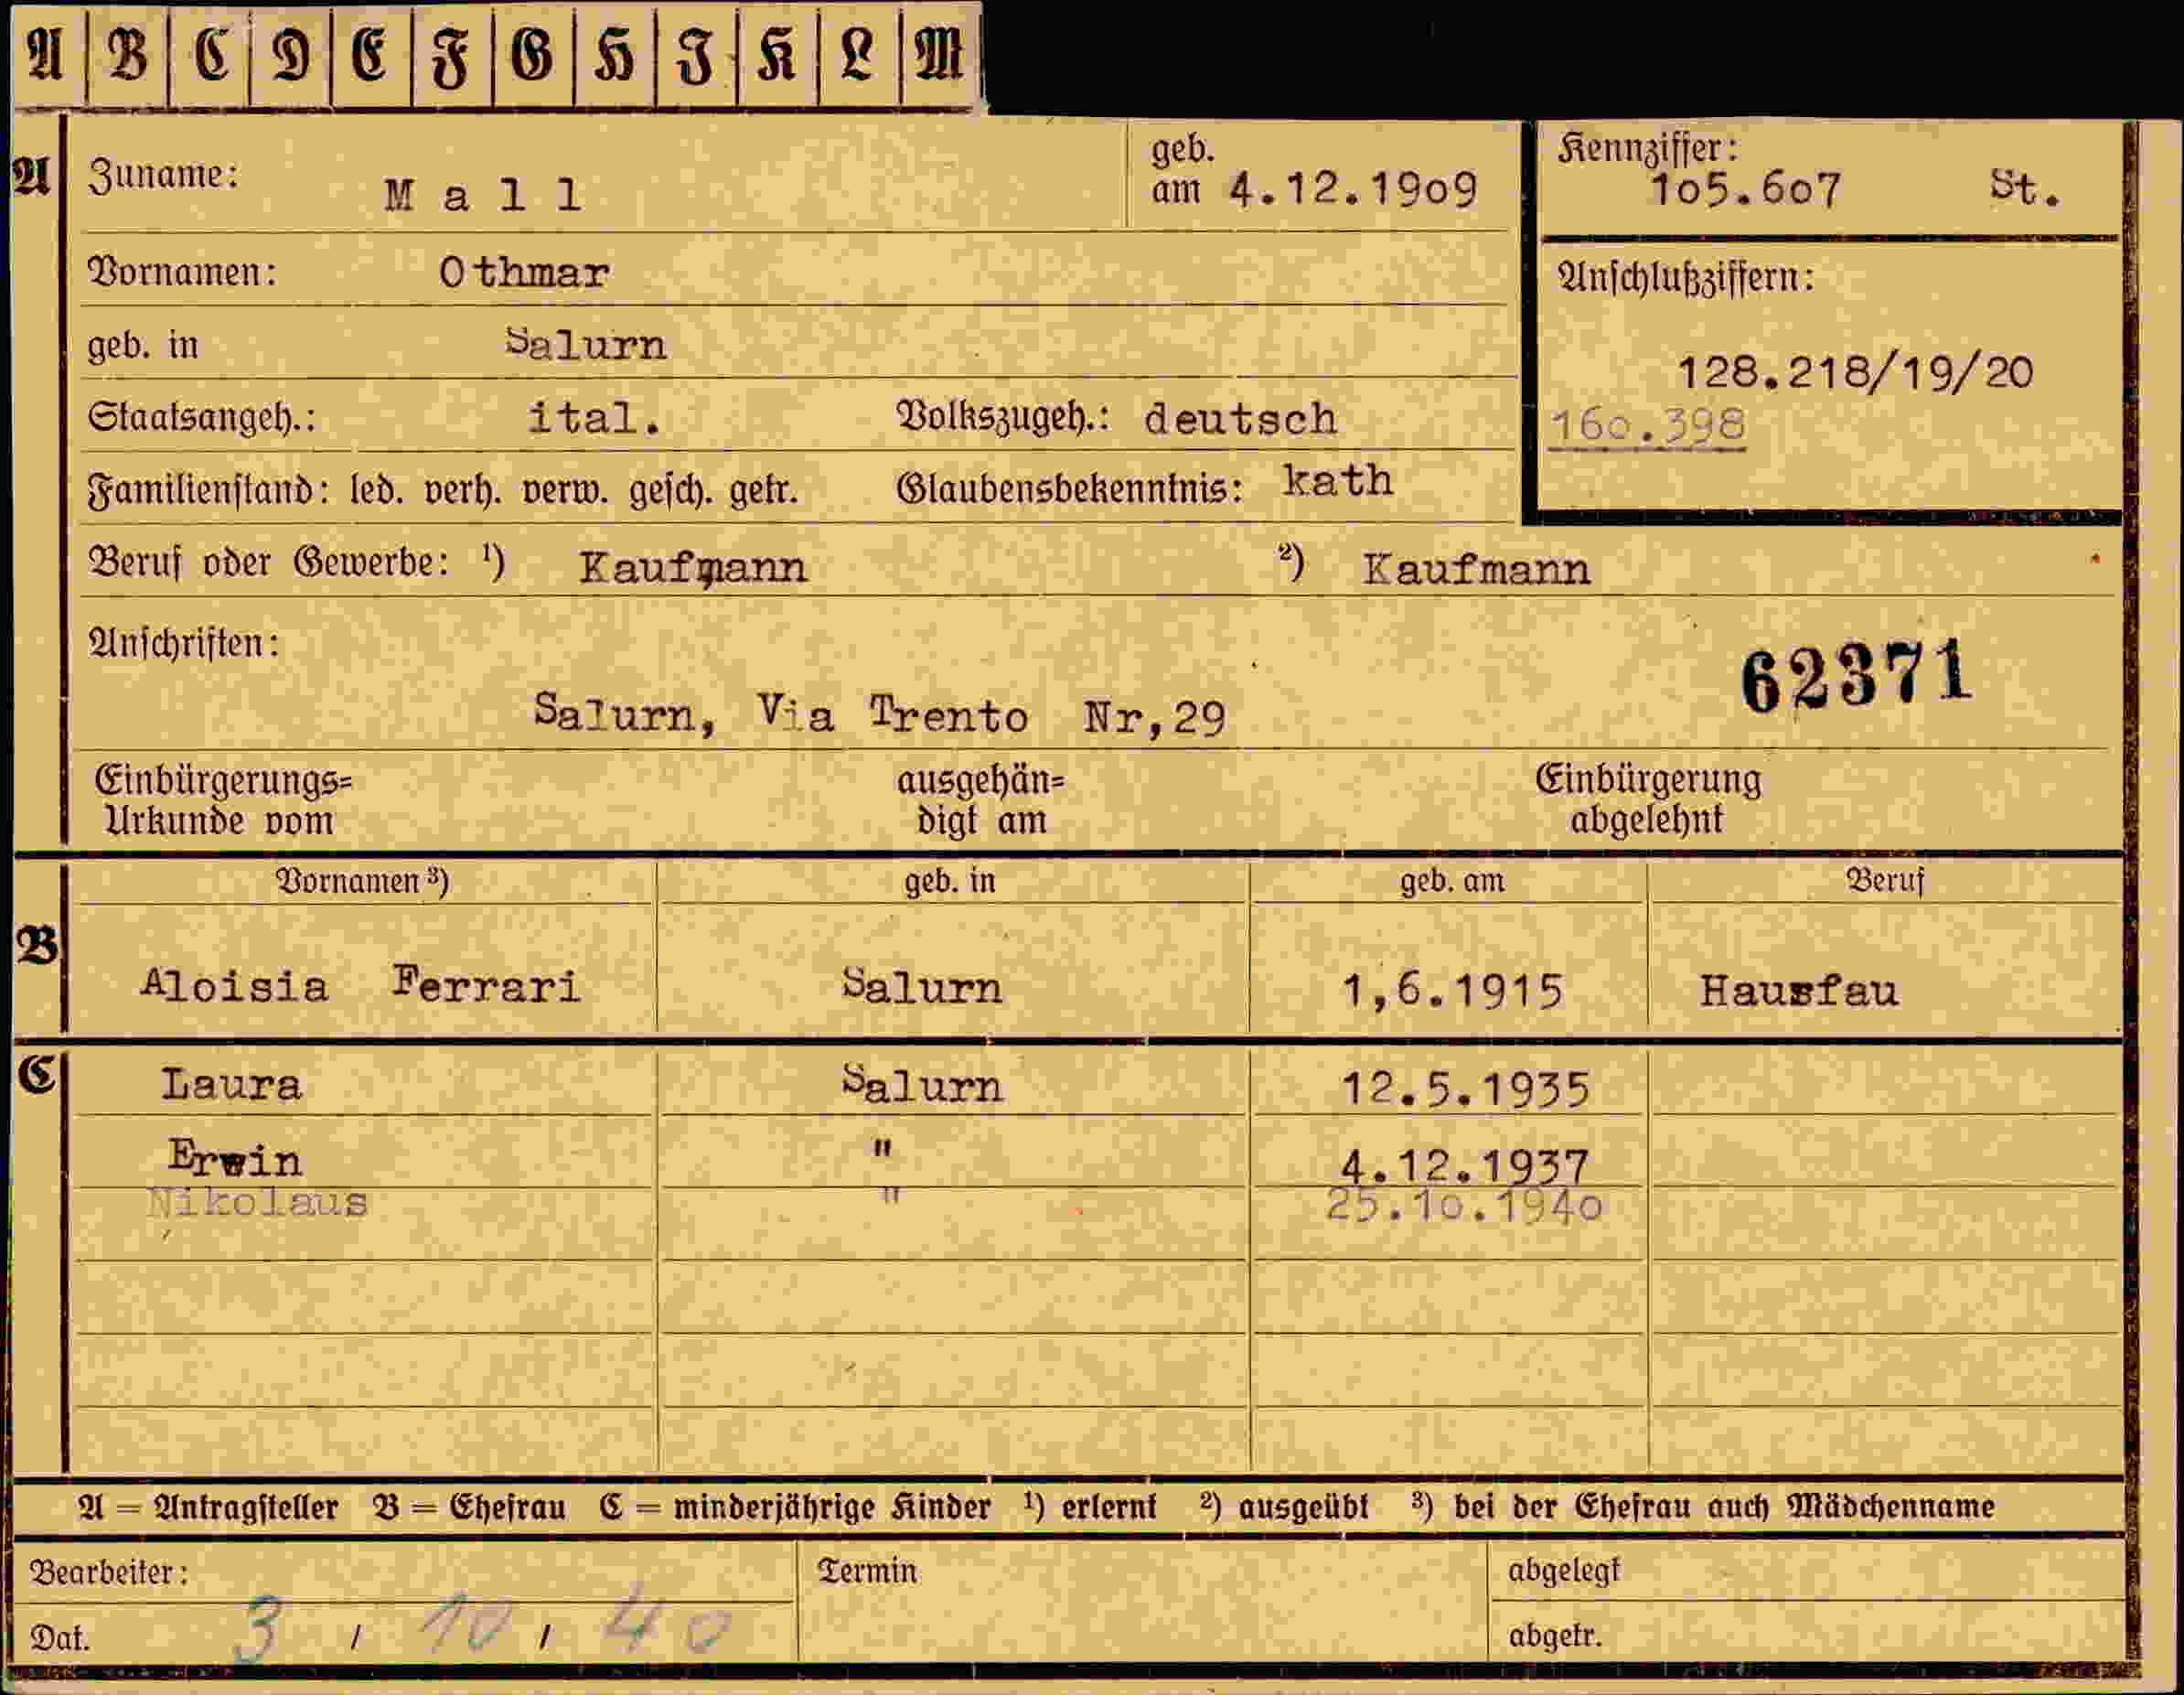 A B C D E F G H I K L M
A Zuname: Mall geb. am 4.12.1909 Kennziffer: 105.607 St.
Vornamen: Othmar Anschlußziffern:
geb. in Salurn 128.218/19/20
Staatsangeh.: ital. Volkszugeh.: deutsch 160.398
Familienstand: led. verh. verw. gesch. getr. Glaubensbekenntnis: kath
Beruf oder Gewerbe: ¹) Kaufmann ²) Kaufmann
Anschriften: 62371
Salurn, Via Trento Nr,29
Einbürgerungs= ausgehän= Einbürgerung
Urkunde vom digt am abgelehnt
Vornamen ³) geb. in geb. am Beruf
B Aloisia Ferrari Salurn 1,6.1915 Hausfau
C Laura Salurn 12.5.1935
Erwin " 4.12.1937
Nikolaus " 25.10.1940
A = Antragsteller B = Ehefrau C = minderjährige Kinder ¹) erlernt ²) ausgeübt ³) bei der Ehefrau auch Mädchenname
Bearbeiter: Termin abgelegt
Dat. 3 / 10 / 40 abgetr.